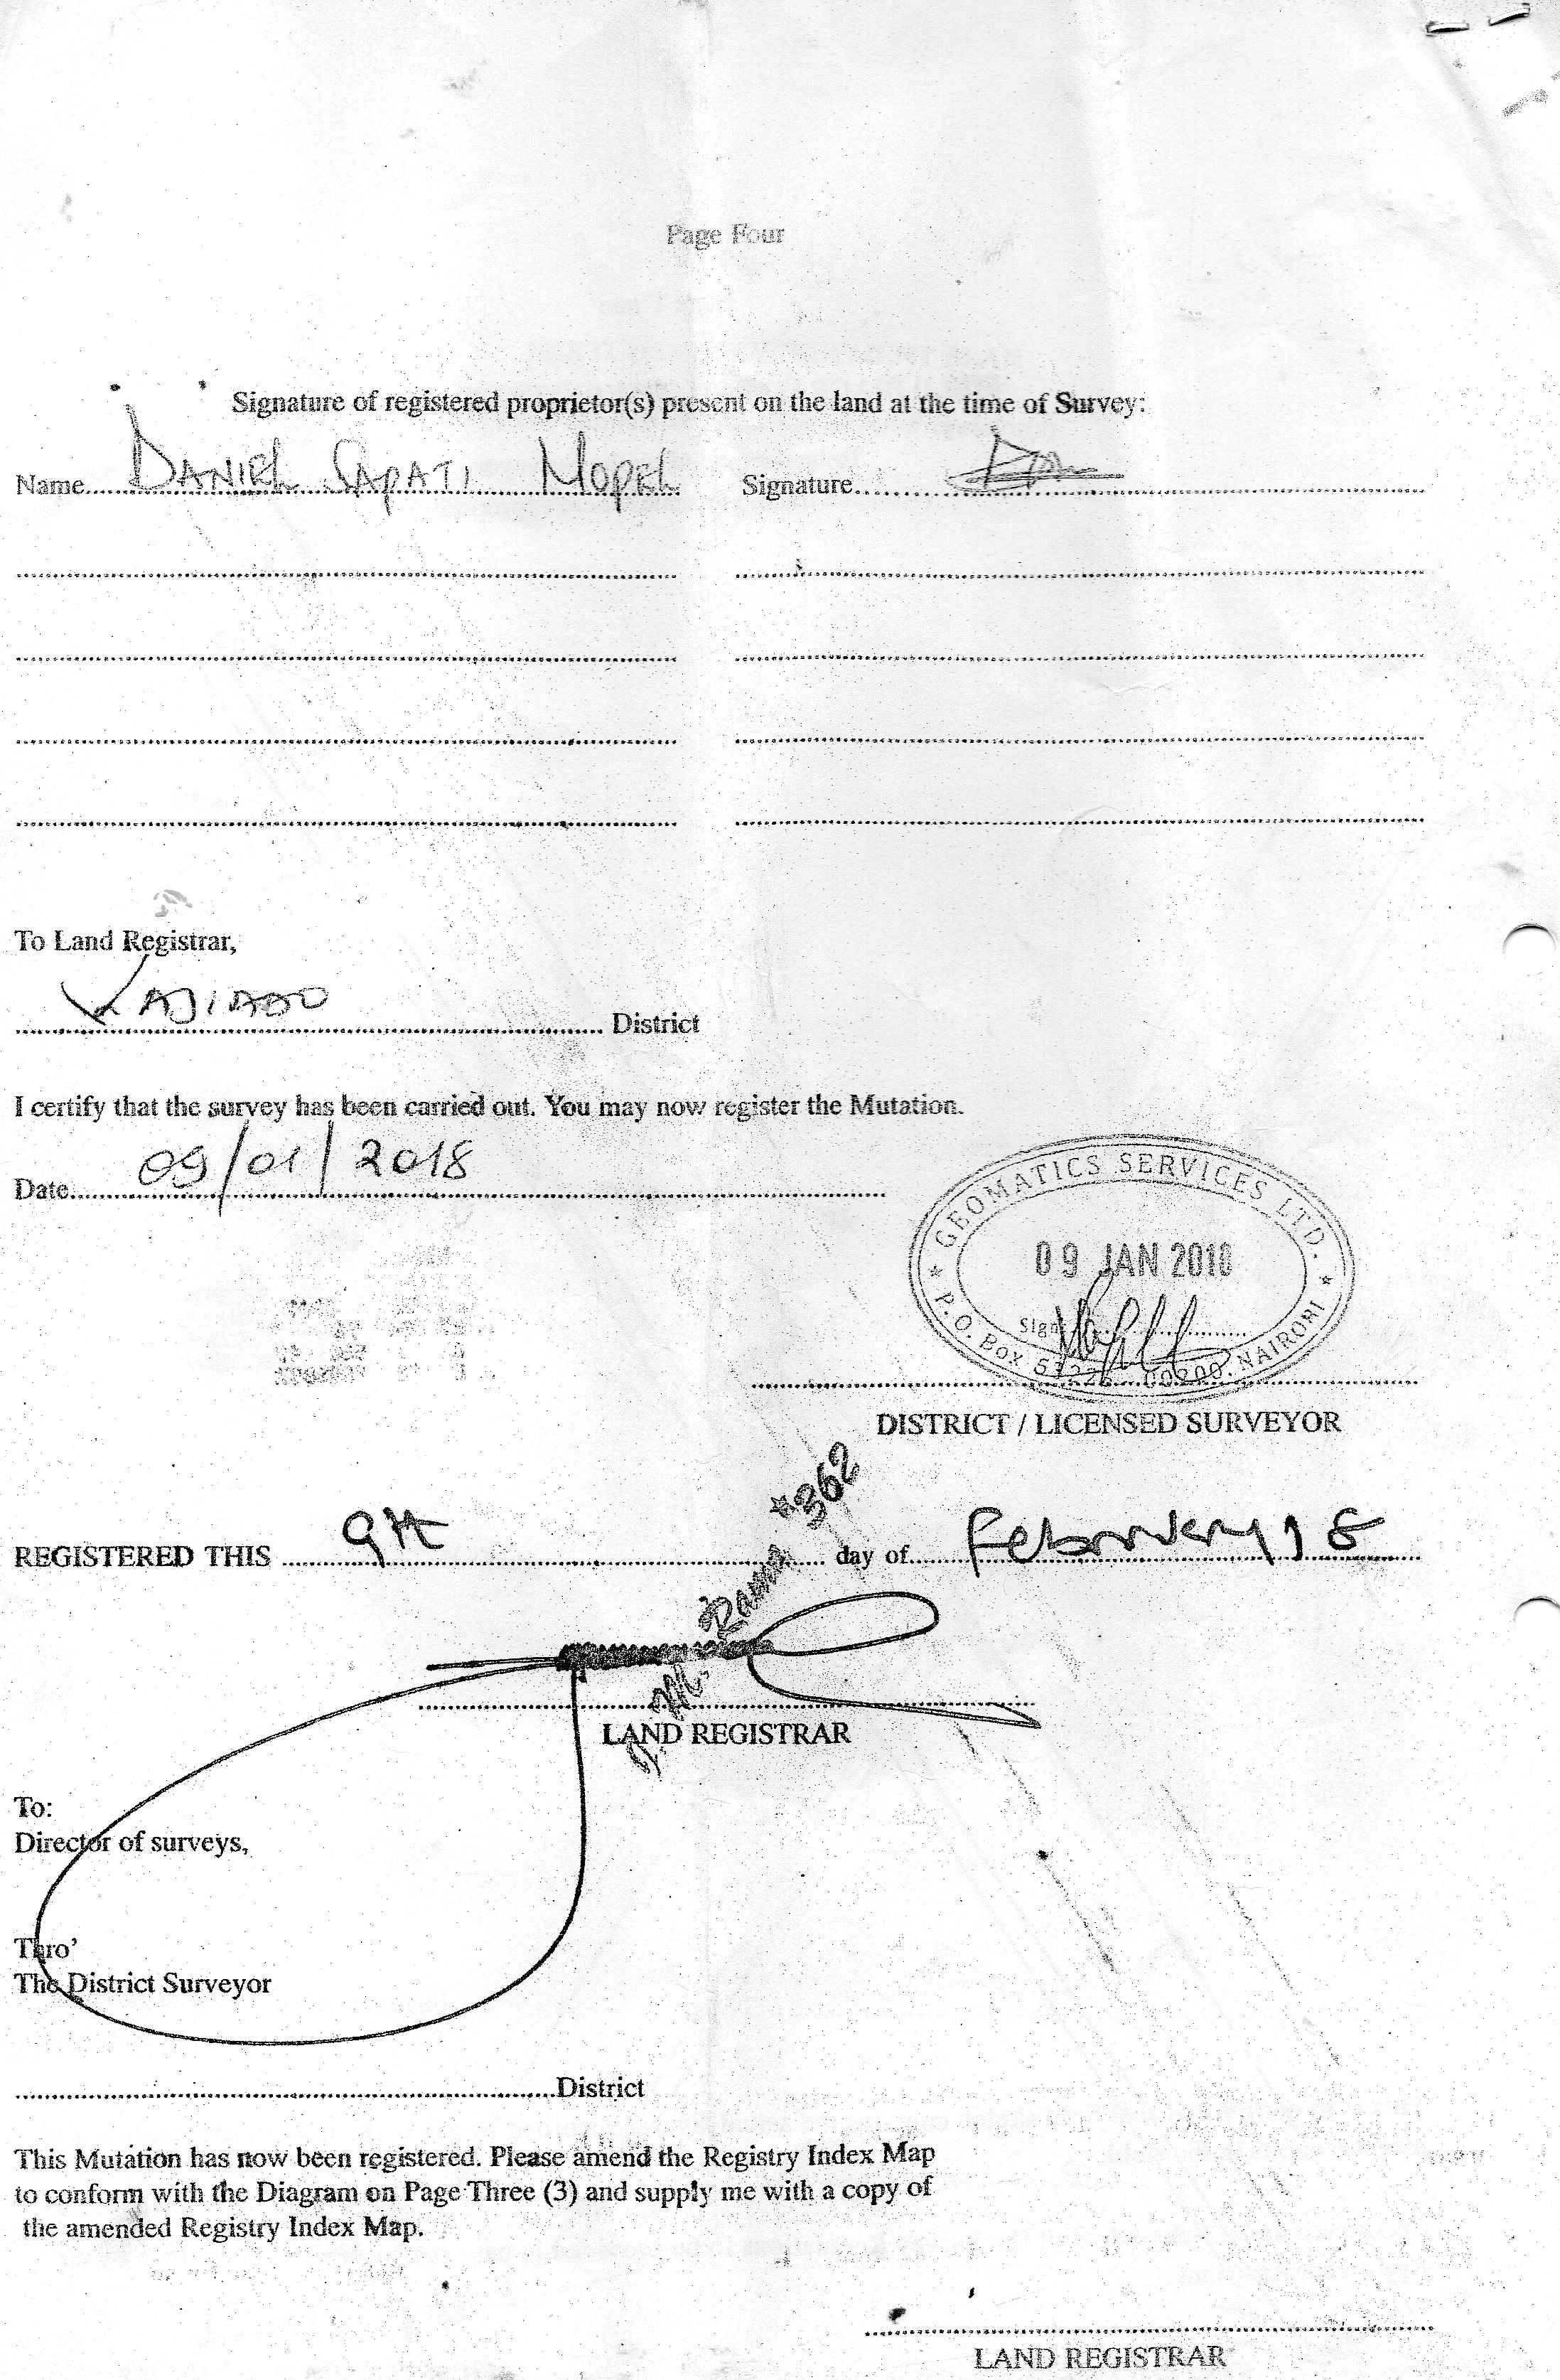 Page Four
Signature of registered proprietor(s) present on the land at the time of Survey:
Name DANIEL SAPATI MOPEL Signature
To Land Registrar,
KAJIADO District
I certify that the survey has been carried out. You may now register the Mutation.
Date 09/01/2018
GEOMATICS SERVICES LTD.
09 JAN 2018
Sign
P.O. Box 00200, NAIROBI
DISTRICT / LICENSED SURVEYOR
*362
REGISTERED THIS 9th day of February 18
LAND REGISTRAR
To:
Director of surveys,
Thro'
The District Surveyor
District
This Mutation has now been registered. Please amend the Registry Index Map
to conform with the Diagram on Page Three (3) and supply me with a copy of
the amended Registry Index Map.
LAND REGISTRAR